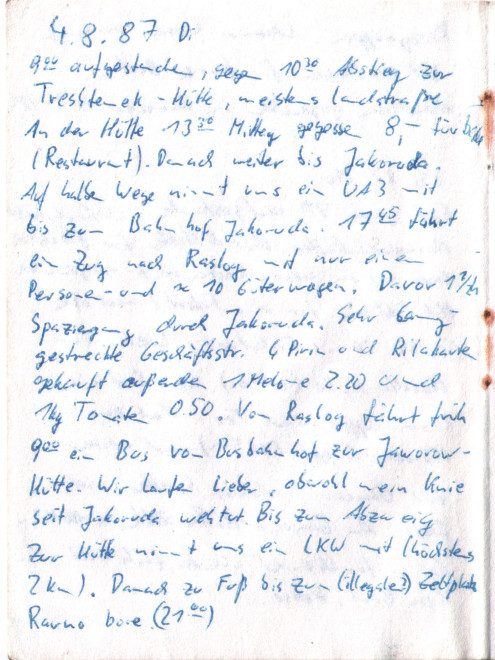 4.8.87 Di
9⁰⁰ aufgestanden, gegen 10³⁰ Abstieg zur
Treschtenek-Hütte, meistens Landstraße
An der Hütte 13³⁰ Mittag gegessen 8,- für beide
(Restaurant). Danach weiter bis Jakoruda.
Auf halben Wege nimmt uns ein UAZ mit
bis zum Bahnhof Jakoruda. 17⁴⁵ fährt
ein Zug nach Raslog mit nur einem
Personen- und ≈ 10 Güterwagen. Davor 1½h
Spaziergang durch Jakoruda. Sehr lang-
gestreckte Geschäftsstr. 4 Pirin und Rilakarten
gekauft außerdem 1 Melone 2.20 und
1kg Tomaten 0.50. Von Raslog fährt früh
9⁰⁰ ein Bus vom Busbahnhof zur Jaworow-
Hütte. Wir laufen lieber, obwohl mein Knie
seit Jakoruda wehtut. Bis zum Abzweig
zur Hütte nimmt uns ein LKW mit (höchstens
2km). Danach zu Fuß bis zum (illegalen?) Zeltplatz
Ravno bore. (21⁰⁰)